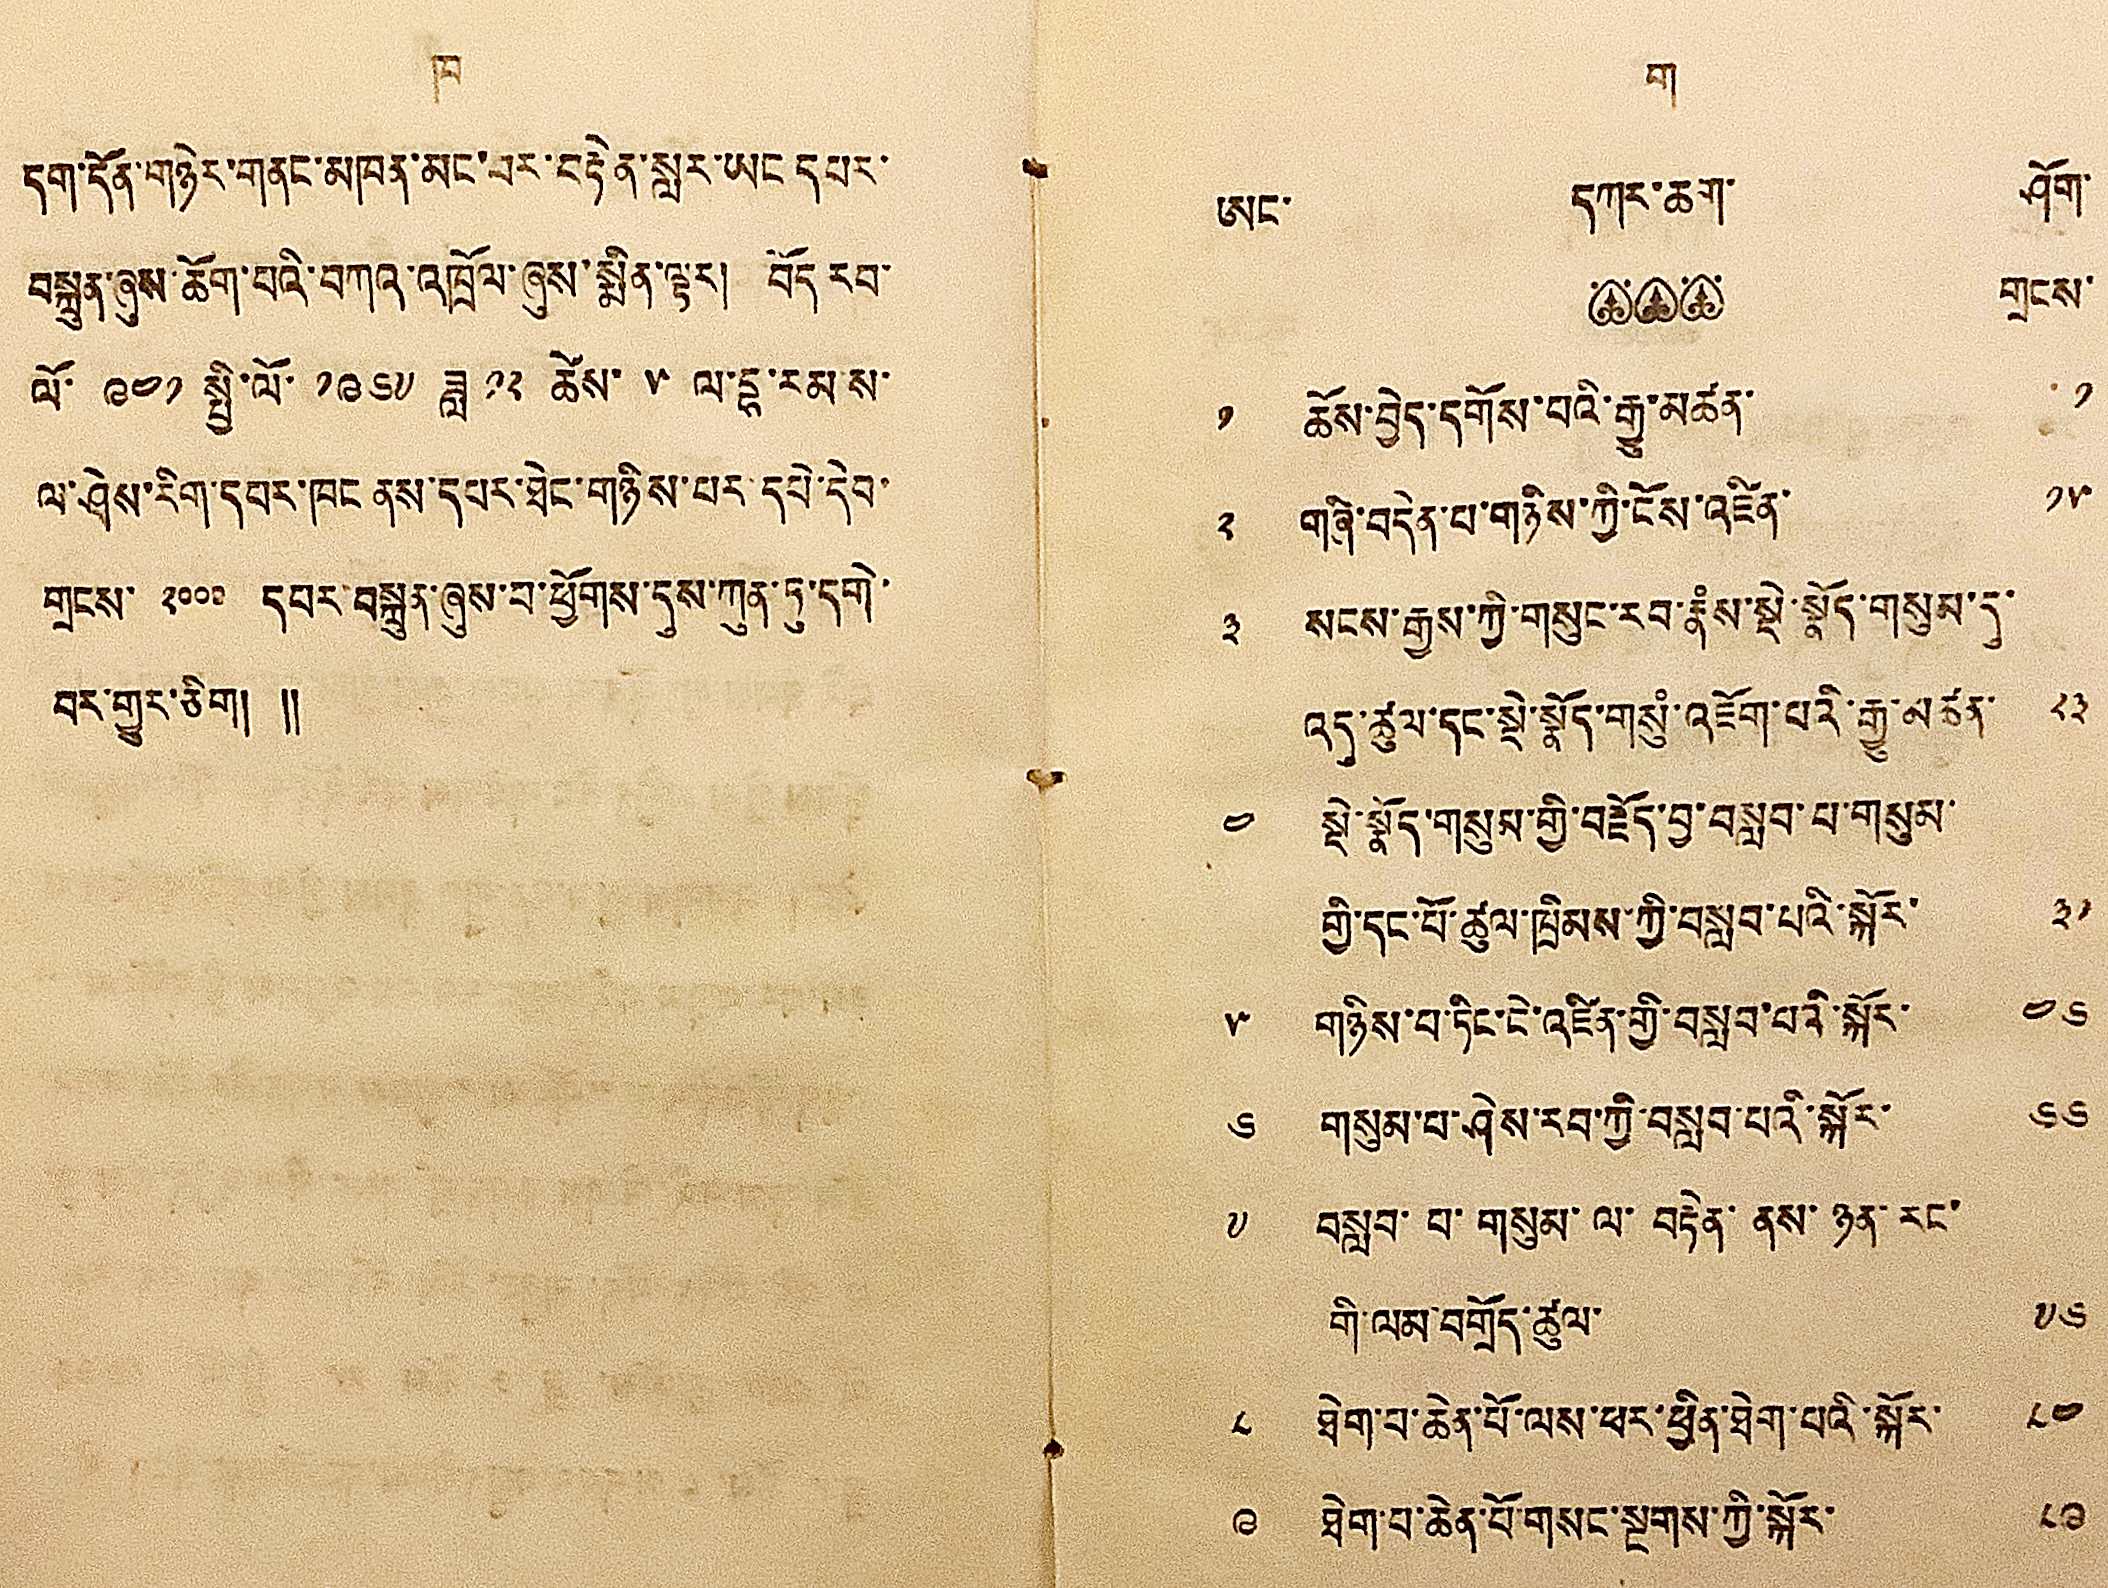 ཁ
དག་དོན་གཉེར་གནང་མཁན་མང་བར་ངརྟེན་སླར་ཨང་དཔར་
བསྐྲུན་ཞུས་ཆོག་པའི་བཀའ་འཁྲོལ་ཞུས་སྨིན་ལྟར། བོད་རབ་
ལོ་ ༩༤༡ སྤྱི་ལོ་ ༡༩༦༧ ཟླ ༡༢ ཚེས་ ༥ ལ་དྷ་རམ་ས་
ལ་ཤེས་རིག་དཔར་ཁང་ནས་དཔར་ཐེང་གཉིས་པར་དཔེ་དེབ་
གྲངས་ ༢༠༠༠ དཔར་བསྐྲུན་ཞུས་པ་ཕྱོགས་དུས་ཀུན་ཏུ་དགེ་
བར་གྱུར་ཅིག། །།
ག
ཨང་ དཀར་ཆག་ ཤོག་
གྲངས་
༡ ཆོས་བྱེད་དགོས་པའི་རྒྱུ་མཚན་ ༡
༢ གཞི་བདེན་པ་གཉིས་ཀྱི་ངོས་འཛིན་ ༡༥
༣ སངས་རྒྱས་ཀྱི་གསུང་རབ་རྣཾས་སྡེ་སྣོད་གསུམ་དུ་
འདུ་ཚུལ་དང་སྡེ་སྣོད་གསུཾ་འཇོག་པའི་རྒྱུ་མཚན་ ༢༣
༤ སྡེ་སྣོད་གསུམ་གྱི་བརྗོད་བྱ་བསླབ་པ་གསུམ་
གྱི་དང་པོ་ཚུལ་ཁྲིམས་ཀྱི་བསླབ་པའི་སྐོར་ ༣༡
༥ གཉིས་པ་ཏིང་ངེ་འཛིན་གྱི་བསླབ་པའི་སྐོར་ ༤༦
༦ གསུམ་པ་ཤེས་རབ་ཀྱི་བསླབ་པའི་སྐོར་ ༦༦
༧ བསླབ་ པ་ གསུམ་ ལ་ བརྟེན་ ནས་ ཉན་ རང་
གི་ལམ་བགྲོད་ཚུལ་ ༧༦
༨ ཐེག་པ་ཆེན་པོ་ལས་ཕར་ཕྱིན་ཐེག་པའི་སྐོར་ ༨༤
༩ ཐེག་པ་ཆེན་པོ་གསང་སྔགས་ཀྱི་སྐོར་ ༨༩